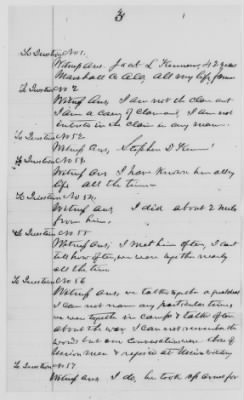 3
To Question No 1.
Witness Ans. L Kennon, 42 years
Marshall Co Ala, all my life, farm
To Question No 2
Witness Ans, I am not the claimant
I am a of claimant, I am not
interested in the claim in any manner.
To Question No 52.
Witness Ans, Stephen D Kennon
To Question No 53.
Witness Ans I have known him all my
life all the time
To Question No 54.
Witness Ans, I did about 2 miles
from him.
To Question No 55
Witness Ans, I met him often, I can't
tell how often, we were together nearly
all the time
To Question No 56
Witness Ans, we talked together a great deal
I can not name any particular times,
we were together in camp & talked often
about the war, I can not remember the
words but our conversation was those of
Union men & rejoice at Union victory
To Question No 57
Witness Ans I do, he took up arms for